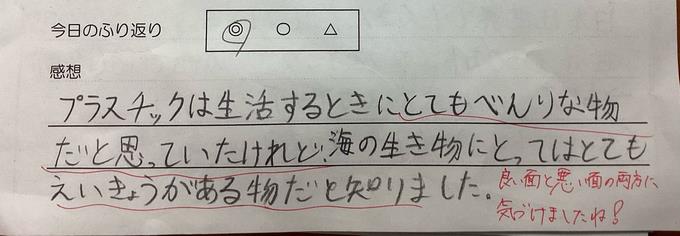 今日のふり返り ◎ ○ △
感想
プラスチックは生活するときにとてもべんりな物
だと思っていたけれど、海の生き物にとってはとても
えいきょうがある物だと知りました。
良い面と悪い面の両方に
気づけましたね!